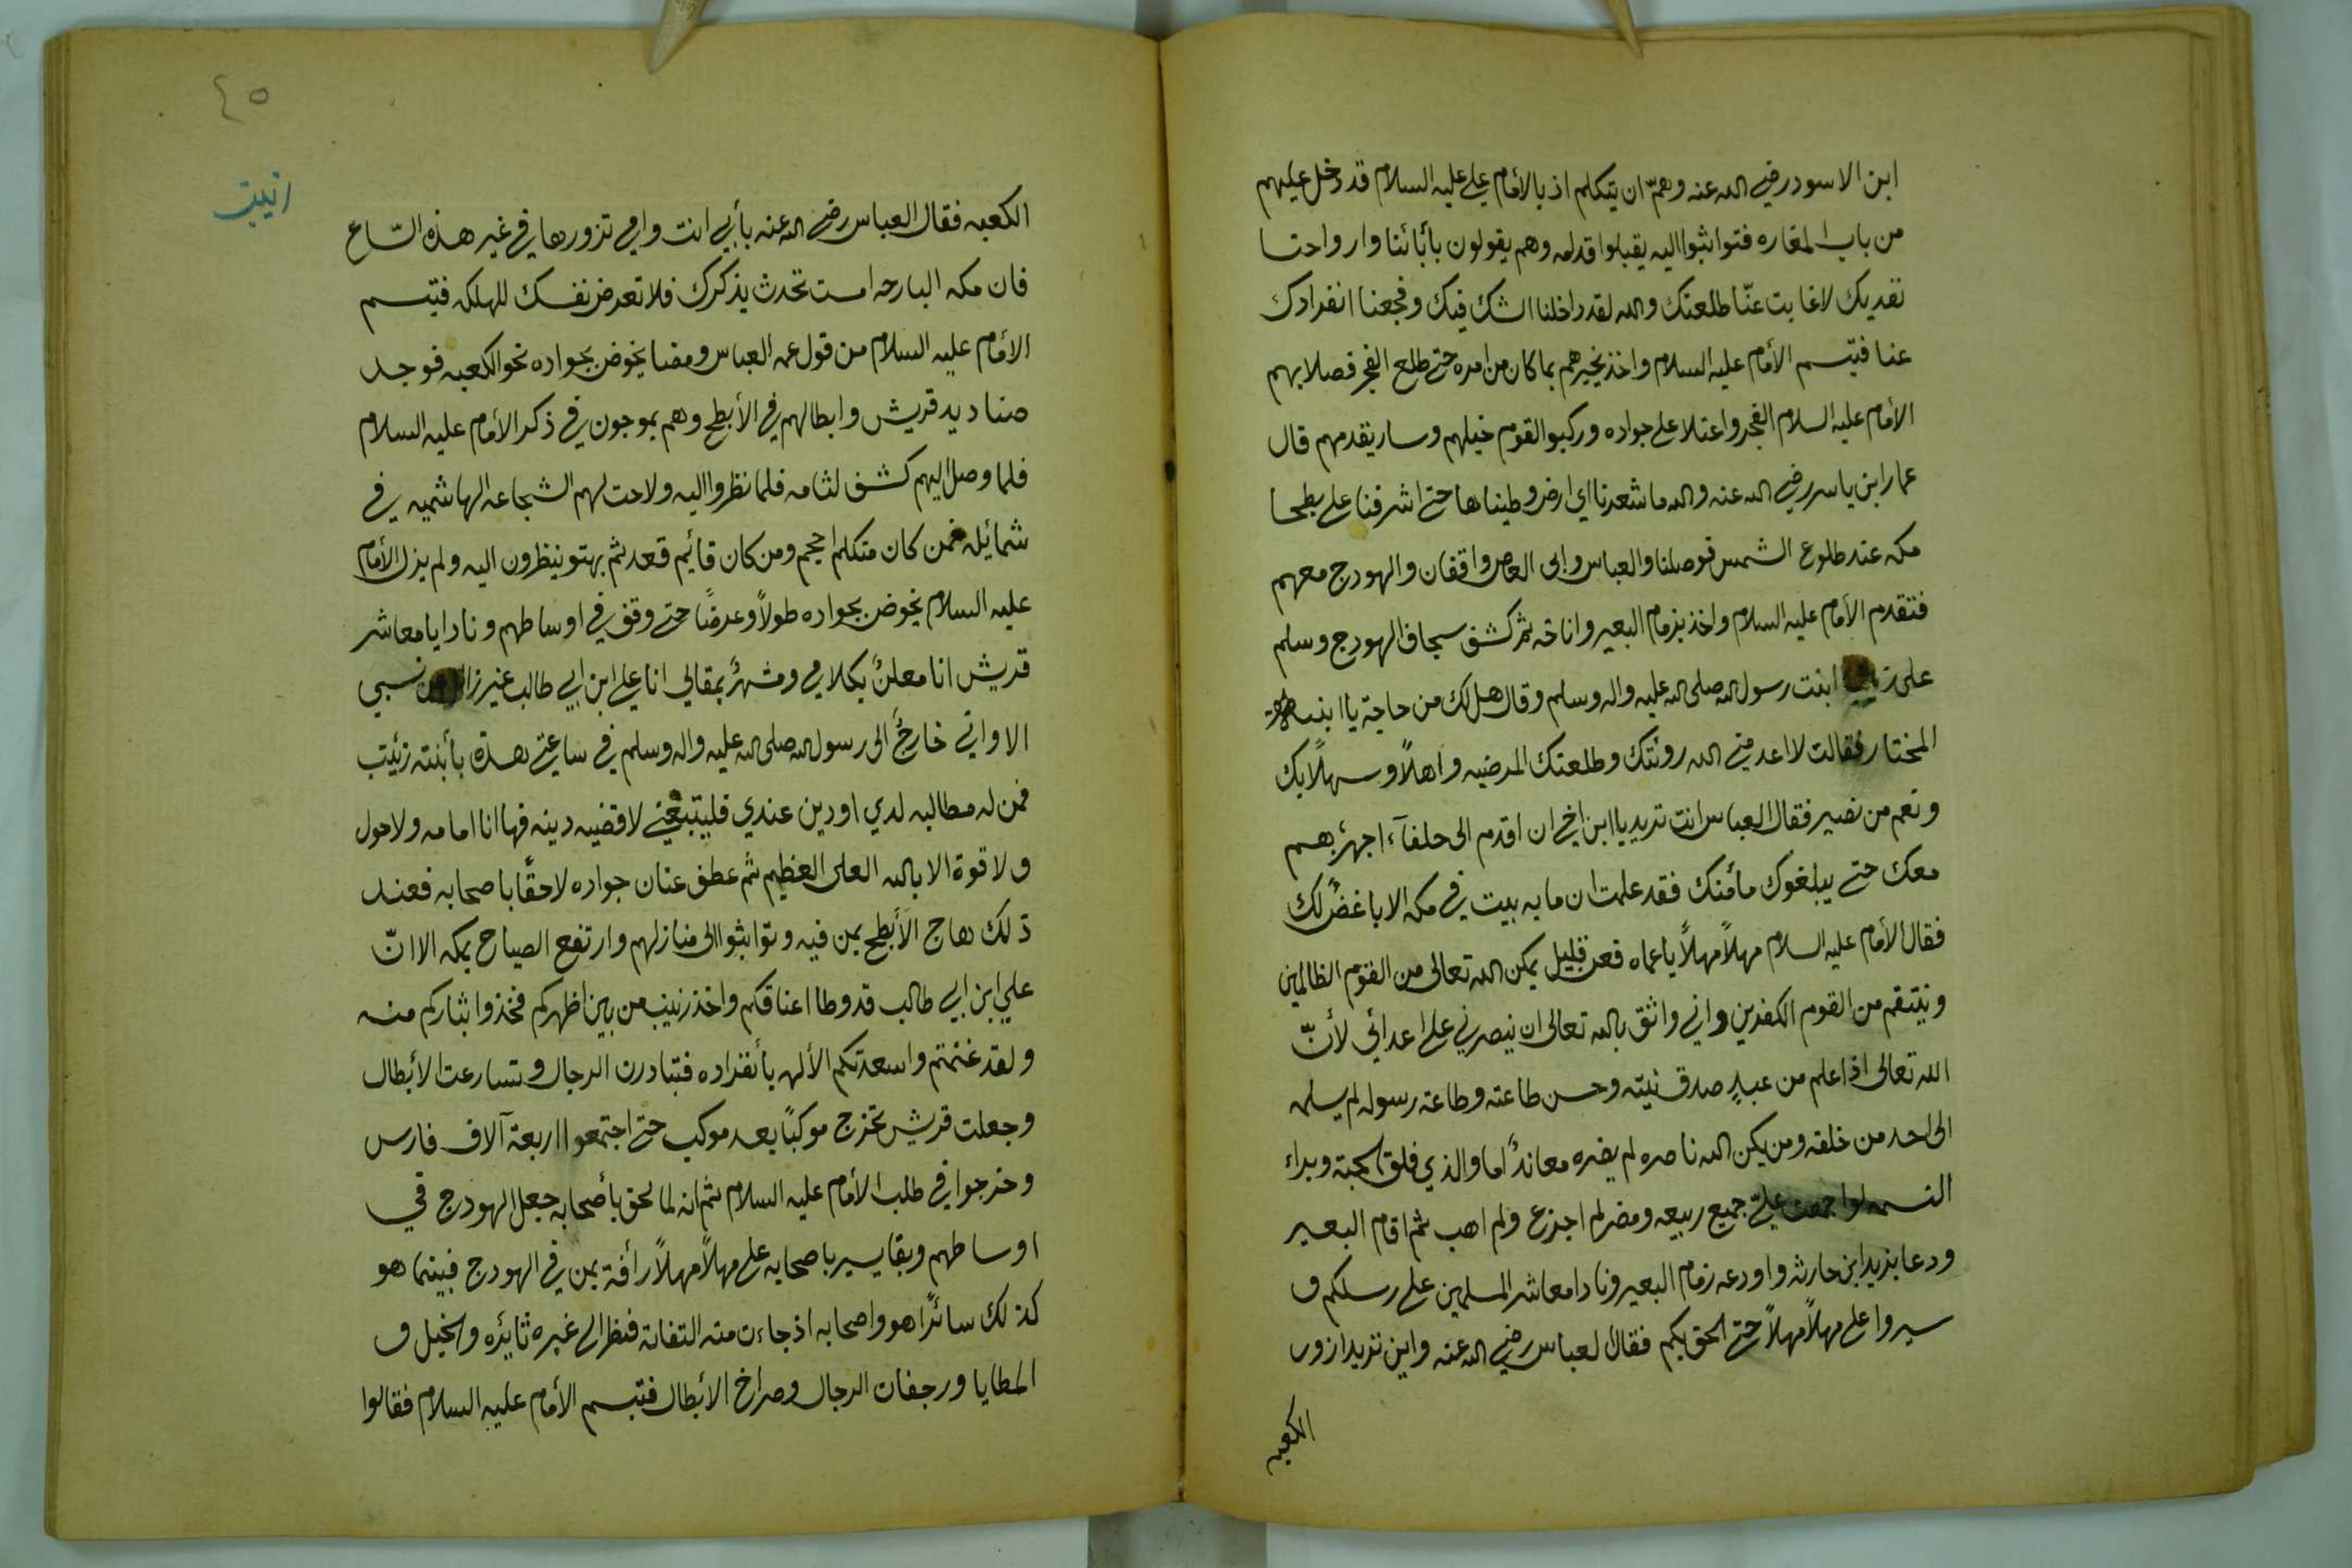 ابن الاسود رضي الله عنه وهمّ ان يتكلم اذ بالأمام علي عليه السلام قد دخل عليهم
من باب المغاره فتواثبوا اليه يقبلوا قدامه وهم يقولون بأبائنا وارواحنا
نفديك لاغابت عنّا طلعتك والله لقد داخلنا الشك فيك وفجعنا انفرادك
عنا فتبسم الأمام عليه السلام واخذ يخبرهم بما كان من امره حتي طلع الفجر فصلا بهم
الأمام عليه السلام الفجر واعتلا علي جواده وركبو القوم خيلهم وسار يقدمهم قال
عمار ابن ياسر رضي الله عنه والله ما شعرنا اي ارض وطيناها حتي اشرفنا علي بطحا
مكه عند طلوع الشمس فوصلنا والعباس وابى العاص واقفان والهودج معهم
فتقدم الأمام عليه السلام واخذ بزمام البعير واناخه ثم كشف سجاف الهودج وسلم
على زينب ابنت رسول الله صلى الله عليه واله وسلم وقال هل لك من حاجة يا ابنة
المختار فقالت لا اعدمني الله رؤئتك وطلعتك المرضيه واهلاً وسهلاً بك
ونعم من نصير فقال العباس انت تريد يا ابن اخي ان اقدم الى حلفآء اجهزّبهم
معك حتي يبلغوك مأمنك فقد علمت ان ما به بيت في مكه الا باغضٌ لك
فقال الأمام عليه السلام مهلاً مهلاً يا عماه فعن قليل يمكن الله تعالى من القوم الظالمين
وينتقم من القوم الكفرين واني واثق بالله تعالى ان ينصرني علي اعدائي لأنّ
الله تعالى اذا علم من عبدٍ صدق نيته وحسن طاعته وطاعة رسوله لم يسلمه
الى احد من خلقه ومن يكن الله ناصره لم يضره معاندٌ اما والذي فلق الحبة وبراء
النسمه لو اجمعت عليّ جميع ربيعه ومضر لم اجزع ولم اهب ثم اقام البعير
ودعا بزيد ابن حارثه واودعه زمام البعير ونادا معاشر المسلمين علي رسلكم و
سيروا علي مهلاً مهلاً حتي الحق بكم فقال لعباس رضي الله عنه واين تريد ازور
الكعبه
٤٥
زينب
الكعبه فقال العباس رضي الله عنه بأبي انت وامي تزورها في غير هذه السّاع
فان مكه البارحه امست تحدث بذكرك فلا تعرض نفسك للهلكه فتبسم
الأمام عليه السلام من قول عمه العباس ومضا يخوض بجواده نحو الكعبه فوجد
صناديد قريش وابطالهم في الأبطح وهم بموجون في ذكر الأمام عليه السلام
فلما وصل اليهم كشف لثامه فلما نظروا اليه ولاحت لهم الشجاعه الهاشميه في
شمائله فمن كان متكلم احجم ومن كان قائيم قعد ثم بهتو ينظرون اليه ولم يزل الأمام
عليه السلام يخوض بجواده طولاً وعرضًا حتي وقف في اوساطهم ونادا يا معاشر
قريش انا معلنٌ بكلامي ومشهرٌ بمقالي انا علي ابن ابي طالب غير نسبي
الا واني خارجٌ الى رسول الله صلى الله عليه واله وسلم في ساعتي هذه بأبنته زئينب
فمن له مطالبه لدي او دين عندي فليتبعني لاقضيه دينه فها انا امامه ولا حول
ولا قوة الا بالله العلى العظيم ثم عطف عنان جواده لاحقًا باصحابه فعند
ذلك هاج الأبطح بمن فيه وتواثبوا الى منازلهم وارتفع الصياح بمكه الا انّ
علي ابن ابي طالب قد وطا اعناقكم واخذ زينب من بين اظهركم فخذوا بثاركم منه
ولقد غنمتم واسعدتكم الألهه بأنفراده فتبادرت الرجال وتسارعت الأبطال
وجعلت قريش تخرج موكبًا بعد موكب حتي اجتمعوا اربعة آلاف فارس
وخرجوا في طلب الأمام عليه السلام ثم انه لما لحق بأصحابه جعل الهودج في
اوساطهم وبقا يسير باصحابه علي مهلاً مهلاً رأفة بمن في الهودج فبينما هو
كذلك سائرًا هو واصحابه اذ جاءت منه التفاتة فنظر الي غبره ثائيره والخيل و
المطايا ورجفات الرجال وصراخ الأبطال فتبسم الأمام عليه السلام فقالوا